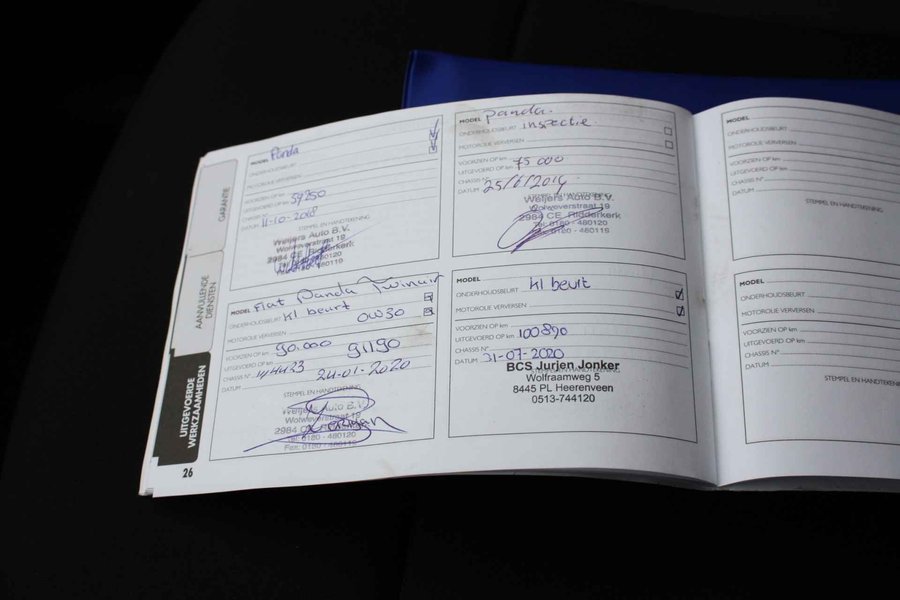 GARANTIE
AANVULLENDE
DIENSTEN
UITGEVOERDE
WERKZAAMHEDEN
26
MODEL Panda
ONDERHOUDSBEURT
MOTOROLIE VERVERSEN
VOORZIEN OP km
UITGEVOERD OP km 59250
CHASSIS N°
DATUM 11-10-2018
STEMPEL EN HANDTEKENING
Weijers Auto B.V.
Wolweverstraat 19
2984 CE Ridderkerk
MODEL Panda
ONDERHOUDSBEURT inspectie
MOTOROLIE VERVERSEN
VOORZIEN OP km
UITGEVOERD OP km 75 000
CHASSIS N°
DATUM 25/6/2019
STEMPEL EN HANDTEKENING
Weijers Auto B.V.
Wolweverstraat 19
2984 CE Ridderkerk
Tel: 0180 - 480120
Fax: 0180 - 480119
MODEL Fiat Panda Twinair
ONDERHOUDSBEURT Kl beurt
MOTOROLIE VERVERSEN 0W30
VOORZIEN OP km 90.000 91190
UITGEVOERD OP km
CHASSIS N°
DATUM 24-01-2020
STEMPEL EN HANDTEKENING
Weijers Auto B.V.
Wolweverstraat 19
2984 CE Ridderkerk
Tel: 0180 - 480120
Fax: 0180 - 480119
MODEL
ONDERHOUDSBEURT Kl beurt
MOTOROLIE VERVERSEN
VOORZIEN OP km
UITGEVOERD OP km 100890
CHASSIS N°
DATUM 31-07-2020
BCS Jurjen Jonker
Wolfraamweg 5
8445 PL Heerenveen
0513-744120
MODEL
ONDERHOUDSBEURT
MOTOROLIE VERVERSEN
VOORZIEN OP km
UITGEVOERD OP km
CHASSIS N°
DATUM
STEMPEL EN HANDTEKENING
MODEL
ONDERHOUDSBEURT
MOTOROLIE VERVERSEN
VOORZIEN OP km
UITGEVOERD OP km
CHASSIS N°
DATUM
STEMPEL EN HANDTEKENING